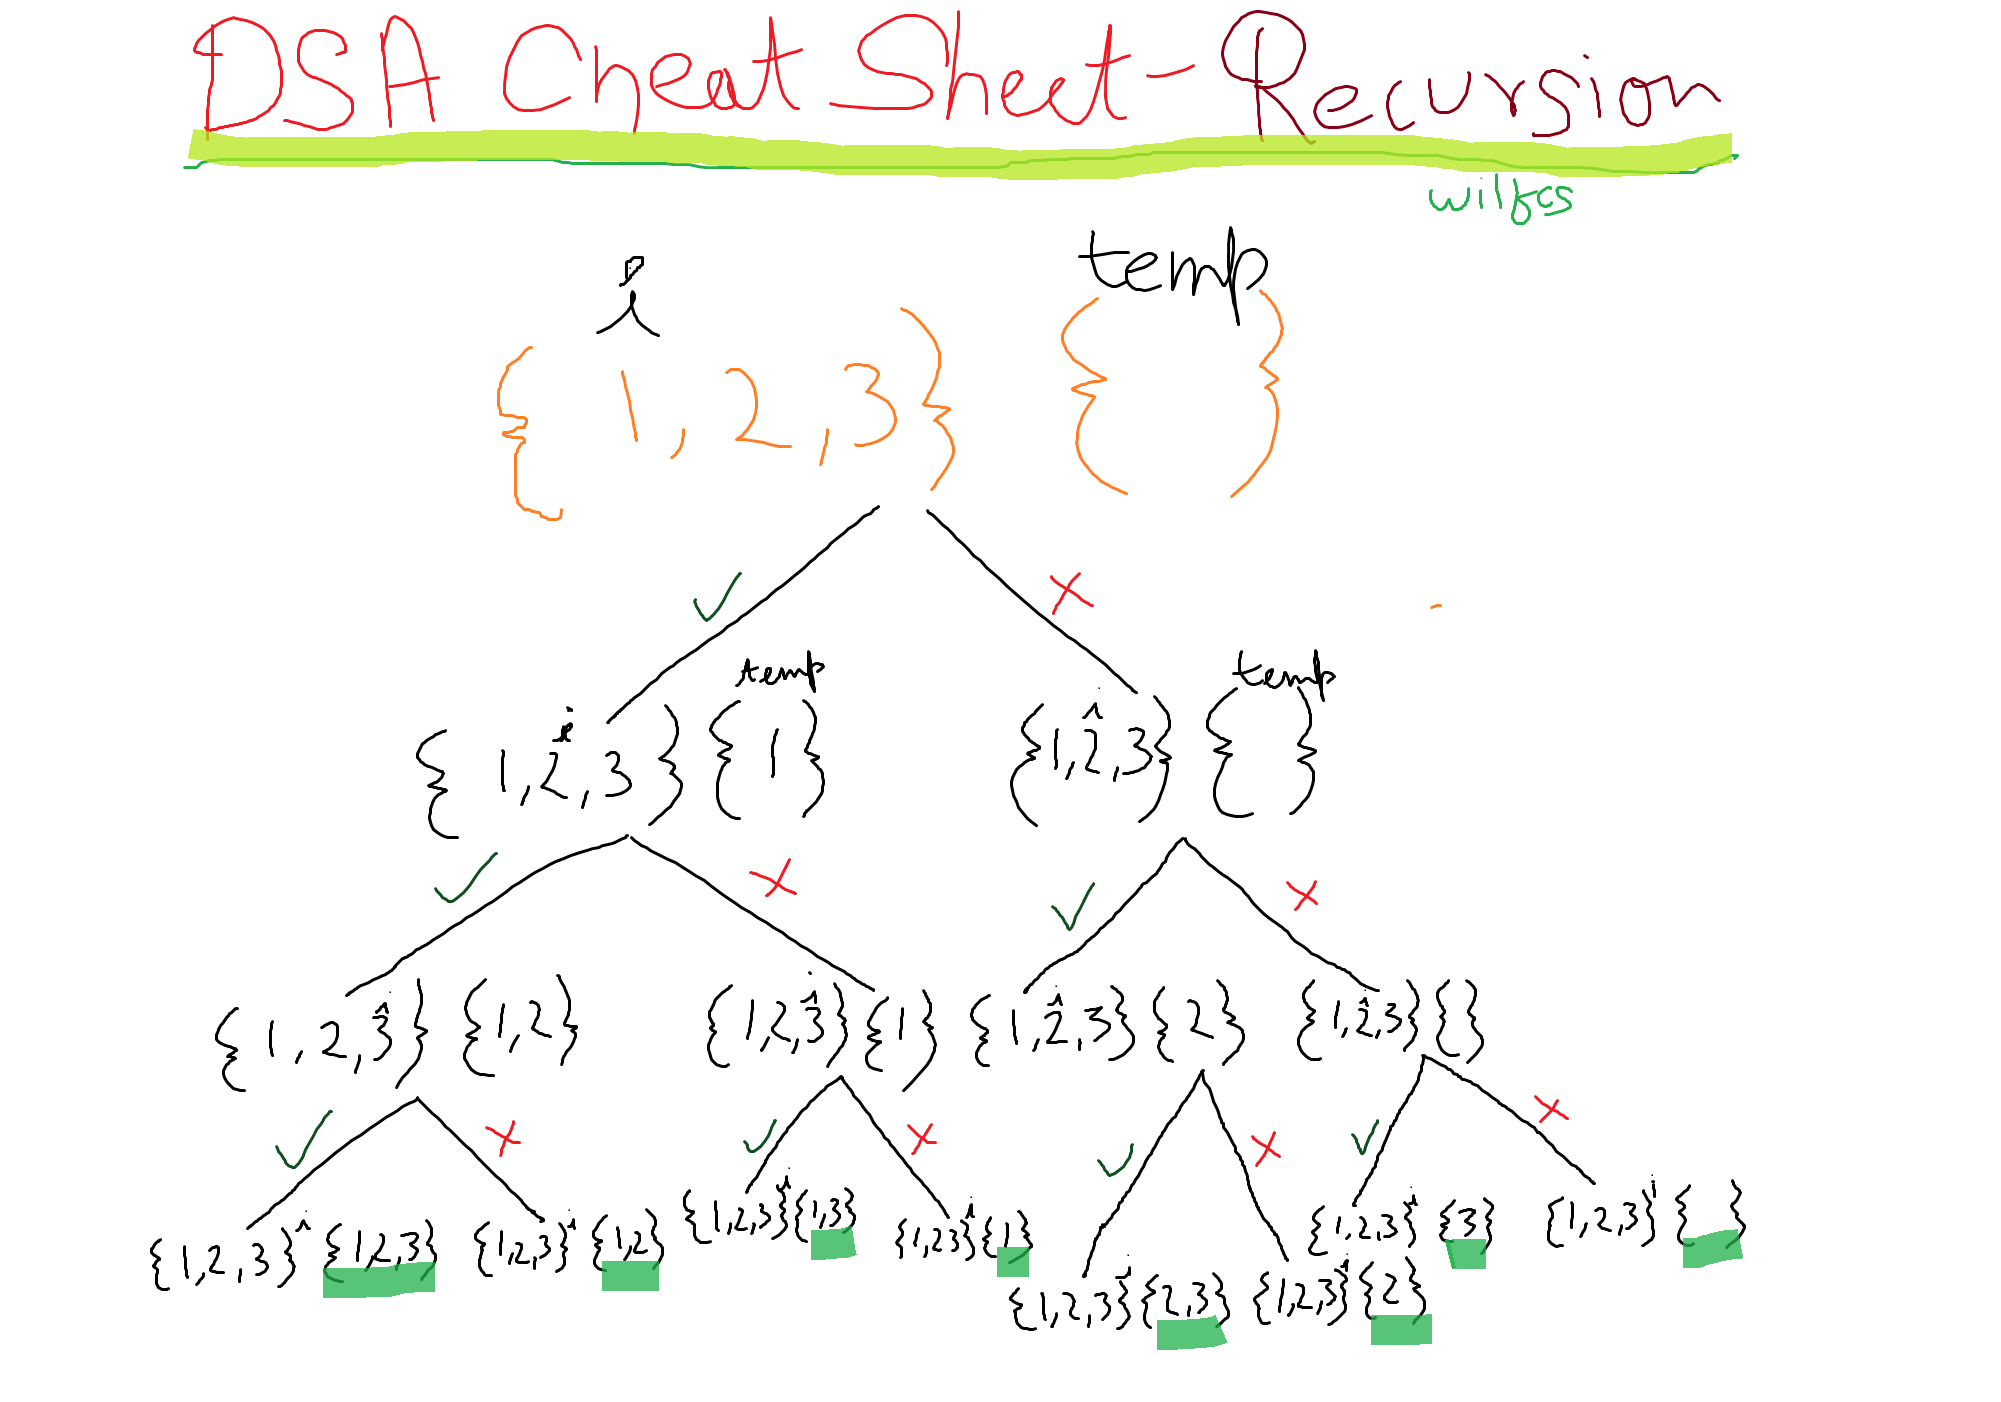 DSA Cheat Sheet - Recursion
wilfcs
i temp
{ 1, 2, 3 } { }
✓ ✗
temp temp
i i
{ 1, 2, 3 } { 1 } { 1, 2, 3 } { }
✓ ✗ ✓ ✗
i i i i
{ 1, 2, 3 } { 1, 2 } { 1, 2, 3 } { 1 } { 1, 2, 3 } { 2 } { 1, 2, 3 } { }
✓ ✗ ✓ ✗ ✓ ✗ ✓ ✗
{ 1, 2, 3 } i { 1, 2, 3 } { 1, 2, 3 } i { 1, 2 } { 1, 2, 3 } i { 1, 3 } { 1, 2 3 } i { 1 } { 1, 2, 3 } i { 3 } { 1, 2, 3 } i { }
{ 1, 2, 3 } i { 2, 3 } { 1, 2, 3 } i { 2 }